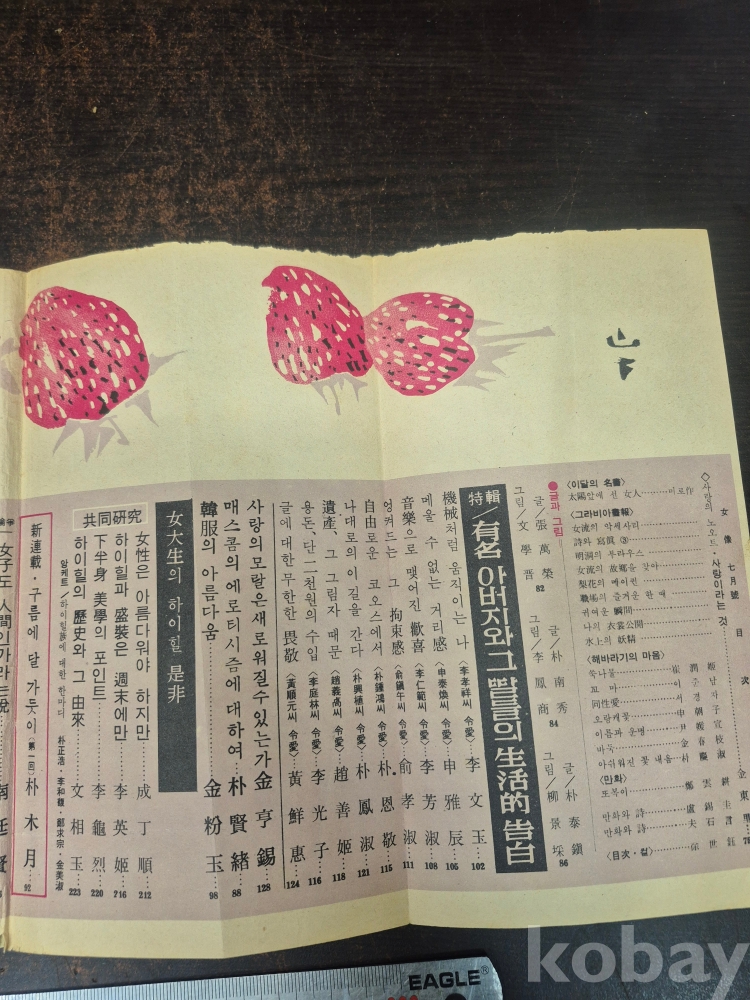 女像 七月號 目次
◇사랑의 노오트・사랑이라는 것……金東里 78
〈이달의 名畵〉
太陽앞에 선 女人………미로作
〈그라비아畵報〉
女流의 악세사리
詩와 寫眞 ③
明洞의 부라우스
女流의 故鄕을 찾아
梨花의 메이퀸
職場의 즐거운 한 때
귀여운 瞬間
나의 衣裳公開
水上의 妖精
〈해바라기의 마음〉
쑥나물……崔潤順
꼬마……이주남
同性愛……서경자
오랑캐꽃
이름과 운명
바둑
아쉬워진 꽃 내음
〈만화〉
또복이……鄭雲耕
만화와 詩
만화와 詩
〈目次・컽〉
●글과 그림
글/張萬榮
그림/文學晋 82
글/朴南秀
그림/李鳳商 84
글/朴泰鎭
그림/柳景埰 86
特輯/有名 아버지와 그 딸들의 生活的 告白
機械처럼 움직이는 나〈李孝祥씨 令愛〉李文玉…102
메울 수 없는 거리感〈申泰煥씨 令愛〉申雅辰…105
音樂으로 맺어진 歡喜〈李仁範씨 令愛〉李芳淑…108
엉켜드는 그 拘束感〈兪鎭午씨 令愛〉兪孝淑…111
自由로운 코오스에서〈朴鍾鴻씨 令愛〉朴恩敬…115
나대로의 이길을 간다〈朴興植씨 令愛〉朴鳳淑…121
遺產、그 그림자 때문〈趙義高씨 令愛〉趙善姬…118
용돈、단 二천원의 수입〈李庭林씨 令愛〉李光子…116
글에 대한 무한한 畏敬〈黃順元씨 令愛〉黃鮮惠…124
사랑의 모랄은 새로워질수 있는가 金亨錫…128
매스콤의 에로티시즘에 대하여…朴賢緖…88
韓服의 아름다움……金粉玉…98
女大生의 하이힐 是非
共同硏究
女性은 아름다워야 하지만……成丁順…212
하이힐과 盛裝은 週末에만……李英姬…216
下半身 美學의 포인트……李龜烈…220
하이힐의 歷史와 그 由來……文相玉…223
앙케트/하이힐族에 대한 한마디 朴正浩・李和馥・鄭求宗・金美淑
新連載・구름에 달 가듯이(第一回) 朴木月…92
女子도 人間인가라는 說
EAGLE®
kobay